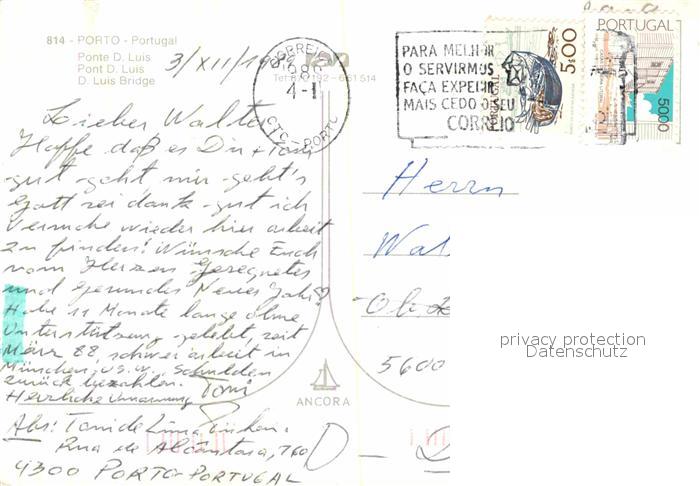 814 - PORTO - Portugal
Ponte D. Luis
Pont D. Luis
D. Luis Bridge
3/XII/198
CORREIOS
4-1
CTC-PORTO
PARA MELHOR
O SERVIRMOS
FAÇA EXPEDIR
MAIS CEDO O SEU
CORREIO
5$00
PORTUGAL
5000
Lieber Walter
Hoffe daß es Dir + Toni
gut geht mir geht's
Gott sei dank gut ich
Versuche wieder hier arbeit
zu finden! Wünsche Euch
vom Herzen Gesegnetes
und Gesundes Neues Jahr
Habe 11 Monate lange ohne
Unterstützung gelebt, seit
März 88, schwer arbeit in
München u.s.w. Schulden
zurück bezahlen. Toni
Herzliche Umarmung
Abs: Toni de Lima
Rua de Alcântara, 760
4300 PORTO-PORTUGAL
ANCORA
Herrn
Wal
5600
D
privacy protection
Datenschutz